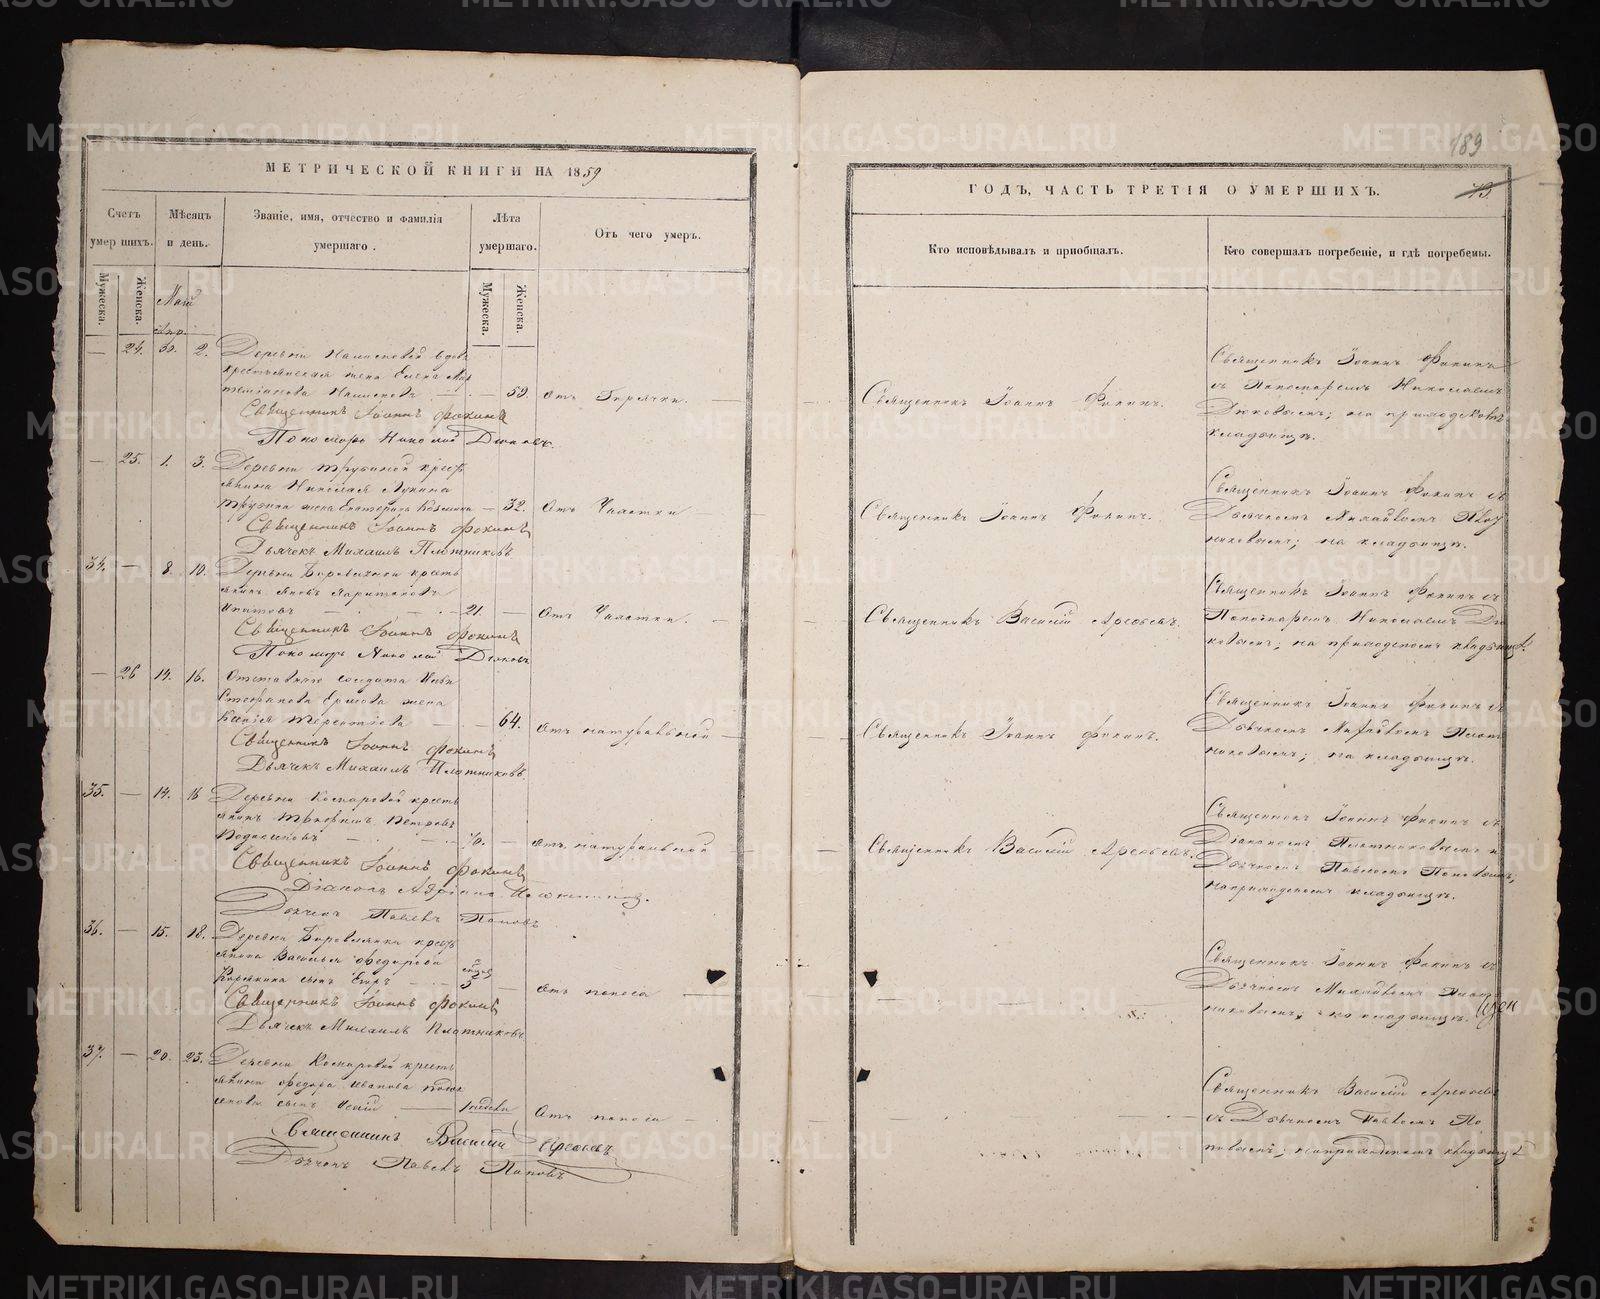 МЕТРИЧЕСКОЙ КНИГИ НА 1859
Счетъ умерших.
Мѣсяцъ и день.
Званіе, имя, отчество и фамилія умершаго.
Лѣта умершаго.
Отъ чего умеръ.
Мужеска.
Женска.
Май
Мужеска.
Женска.
— 24. 30. 2. Деревни вдова
крестьянская жена Елена
— 59. Отъ Горячки.
Священникъ Іоаннъ Фокинъ
Пономарь Николай Дюковъ.
— 25. 1. 3. Деревни Трубиной крест
янина Николая Лукина
Трубина жена Екатерина Козьмина — 32. Отъ Чахотки
Священникъ Іоаннъ Фокинъ
Дьячекъ Михаилъ Плотниковъ
34. — 8. 10. Деревни кресть
янинъ Яковъ Харитоновъ
Ипатовъ 21. — Отъ Чахотки.
Священникъ Іоаннъ Фокинъ
Пономарь Николай Дюковъ
— 26 14. 16. Отставнаго солдата Ильи
Стефанова Ершова жена
Терентіева — 64. Отъ натуральной
Священникъ Іоаннъ Фокинъ
Дьячекъ Михаилъ Плотниковъ
35. — 14. 16 Деревни Комаровой кресть
янинъ Трофимъ Петровъ
70. — Отъ натуральной
Священникъ Іоаннъ Фокинъ
Діаконъ
Дьячекъ Павелъ Поповъ
36. — 15. 18. Деревни Боровлянки крест
янина Василья Федорова
сынъ Егоръ — Отъ поноса
Священникъ Іоаннъ Фокинъ
Дьячекъ Михаилъ Плотниковъ
37. — 20. 23. Деревни Комаровой кресть
янина Федора Иванова
сынъ 1 недели Отъ поноса
Священникъ Василій Арефьевъ
Дьячекъ Павелъ Поповъ
189
ГОДЪ, ЧАСТЬ ТРЕТІЯ О УМЕРШИХЪ.
73.
Кто исповѣдывалъ и пріобщалъ.
Кто совершалъ погребеніе, и гдѣ погребены.
Священникъ Іоаннъ Фокинъ.
Священникъ Іоаннъ Фокинъ
съ Пономаремъ Николаемъ
Дюковымъ; на приходскомъ
кладбищѣ.
Священникъ Іоаннъ Фокинъ.
Священникъ Іоаннъ Фокинъ съ
Дьячкомъ Михайломъ Плот
никовымъ; на кладбищѣ.
Священникъ Василій Арефьевъ.
Священникъ Іоаннъ Фокинъ съ
Пономаремъ Николаемъ Дю
ковымъ; на приходскомъ кладбищѣ.
Священникъ Іоаннъ Фокинъ.
Священникъ Іоаннъ Фокинъ съ
Дьячкомъ Михайломъ Плот
никовымъ; на кладбищѣ.
Священникъ Василій Арефьевъ.
Священникъ Іоаннъ Фокинъ съ
Діакономъ Плотниковымъ и
Дьячкомъ Павломъ Поповымъ;
на приходскомъ кладбищѣ.
Священникъ Іоаннъ Фокинъ съ
Дьячкомъ Михайломъ Плот
никовымъ; на кладбищѣ.
Священникъ Василій Арефьевъ
съ Дьячкомъ Павломъ По
повымъ; на приходскомъ кладбищѣ
METRIKI.GASO-URAL.RU